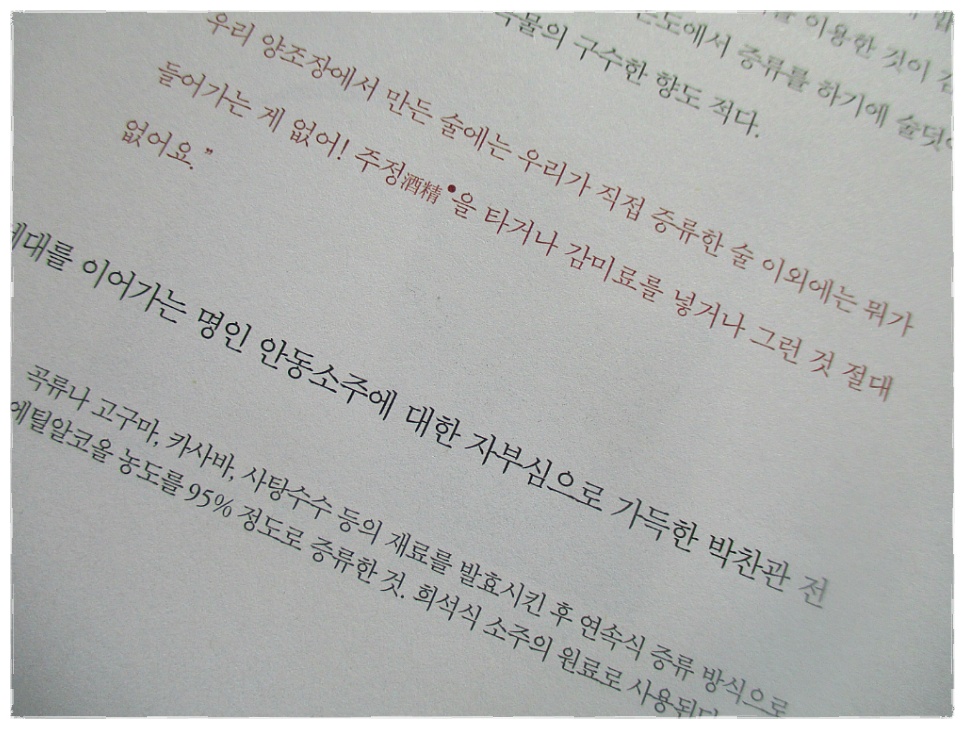 이용한 것이
온도에서 증류를 하기에
구수한 향도 적다.
우리 양조장에서 만든 술에는 우리가 직접 증류한 술 이외에는 뭐가
들어가는 게 없어! 주정酒精•을 타거나 감미료를 넣거나 그런 것 절대
없어요.”
이어가는 명인 안동소주에 대한 자부심으로 가득한 박찬관 전
곡류나 고구마, 카사바, 사탕수수 등의 재료를 발효시킨 후 연속식 증류 방식으로
에틸알코올 농도를 95% 정도로 증류한 것. 희석식 소주의 원료로 사용된다